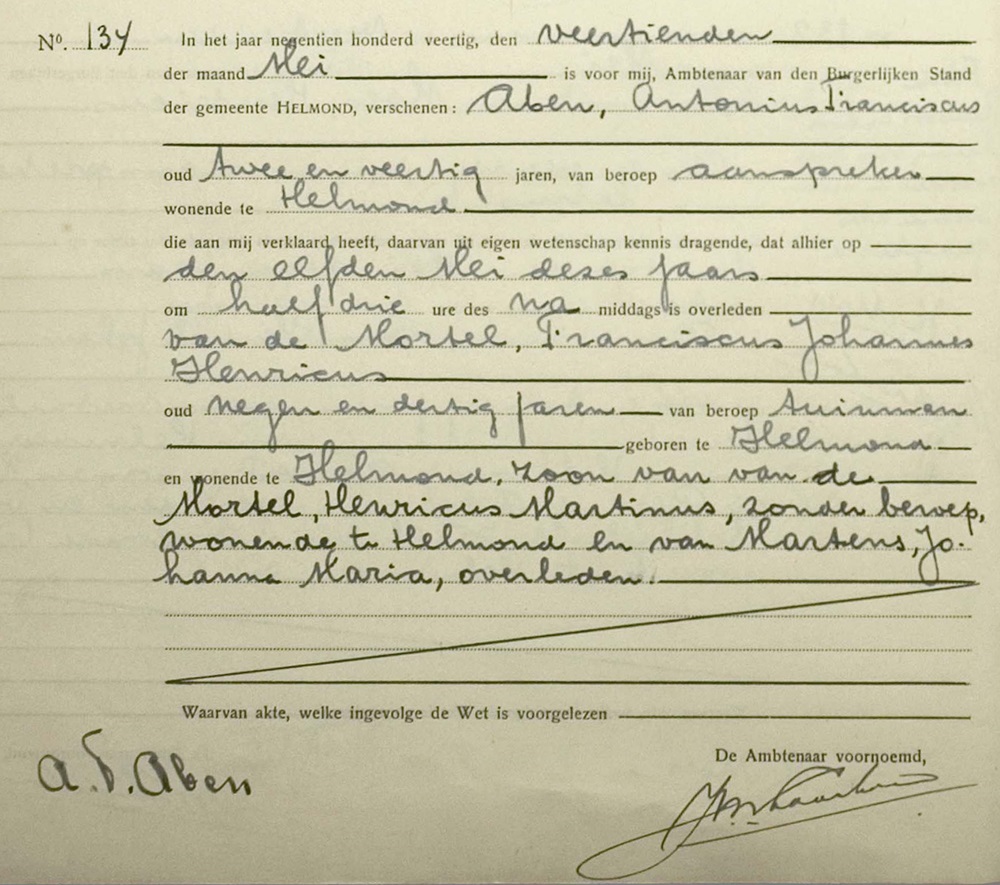 Nº. 134 In het jaar negentien honderd veertig, den veertienden
der maand Mei is voor mij, Ambtenaar van den Burgerlijken Stand
der gemeente HELMOND, verschenen: Aben, Antonius Franciscus
oud twee en veertig jaren, van beroep aanspreker
wonende te Helmond
die aan mij verklaard heeft, daarvan uit eigen wetenschap kennis dragende, dat alhier op
den elfden Mei dezes jaars
om half drie ure des na middags is overleden
van de Mortel, Franciscus Johannes
Henricus
oud negen en dertig jaren van beroep tuinman
geboren te Helmond
en wonende te Helmond, zoon van van de
Mortel, Henricus Martinus, zonder beroep,
wonende te Helmond en van Martens, Jo-
hanna Maria, overleden.
Waarvan akte, welke ingevolge de Wet is voorgelezen
De Ambtenaar voornoemd,
A.F. Aben